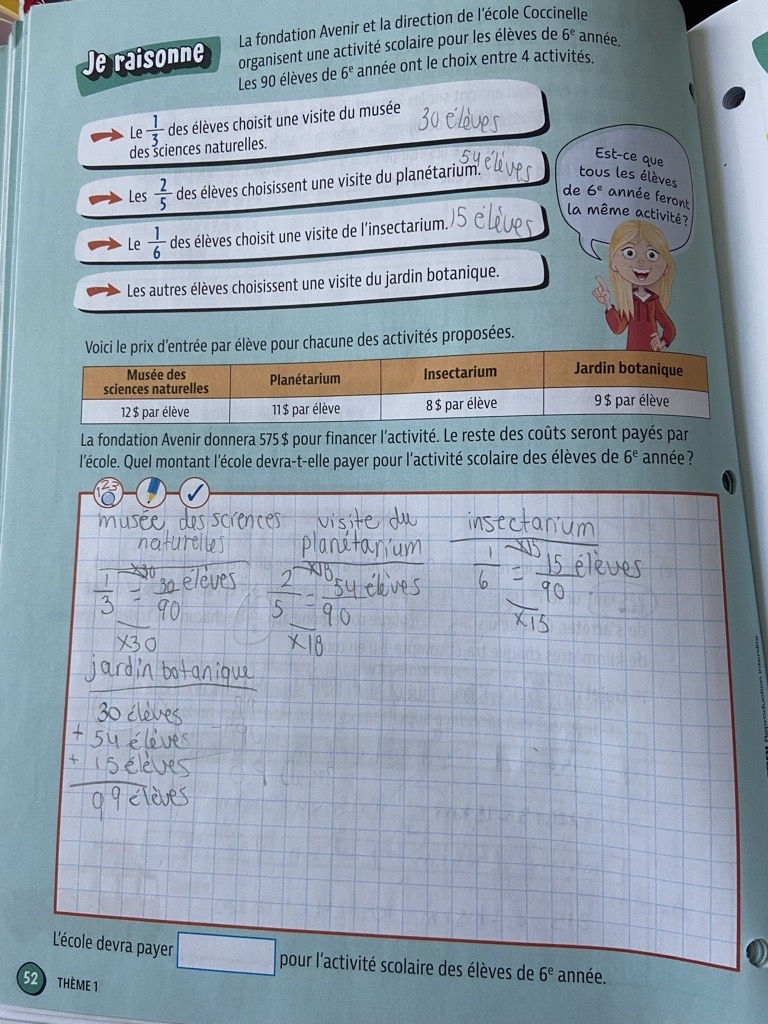 Je raisonne
La fondation Avenir et la direction de l'école Coccinelle
organisent une activité scolaire pour les élèves de 6e année.
Les 90 élèves de 6e année ont le choix entre 4 activités.
Le 1/3 des élèves choisit une visite du musée
des sciences naturelles.
30 élèves
Les 2/5 des élèves choisissent une visite du planétarium.
54 élèves
Le 1/6 des élèves choisit une visite de l'insectarium.
15 élèves
Les autres élèves choisissent une visite du jardin botanique.
Est-ce que
tous les élèves
de 6e année feront
la même activité?
Voici le prix d'entrée par élève pour chacune des activités proposées.
Musée des
sciences naturelles
Planétarium
Insectarium
Jardin botanique
12 $ par élève
11 $ par élève
8 $ par élève
9 $ par élève
La fondation Avenir donnera 575 $ pour financer l'activité. Le reste des coûts seront payés par
l'école. Quel montant l'école devra-t-elle payer pour l'activité scolaire des élèves de 6e année?
123
musée des sciences
naturelles
x30
1/3 = 30 élèves/90
x30
visite du
planétarium
x18
2/5 = 54 élèves/90
x18
insectarium
x15
1/6 = 15 élèves/90
x15
jardin botanique
30 élèves
+ 54 élèves
+ 15 élèves
99 élèves
L'école devra payer
pour l'activité scolaire des élèves de 6e année.
52
THÈME 1